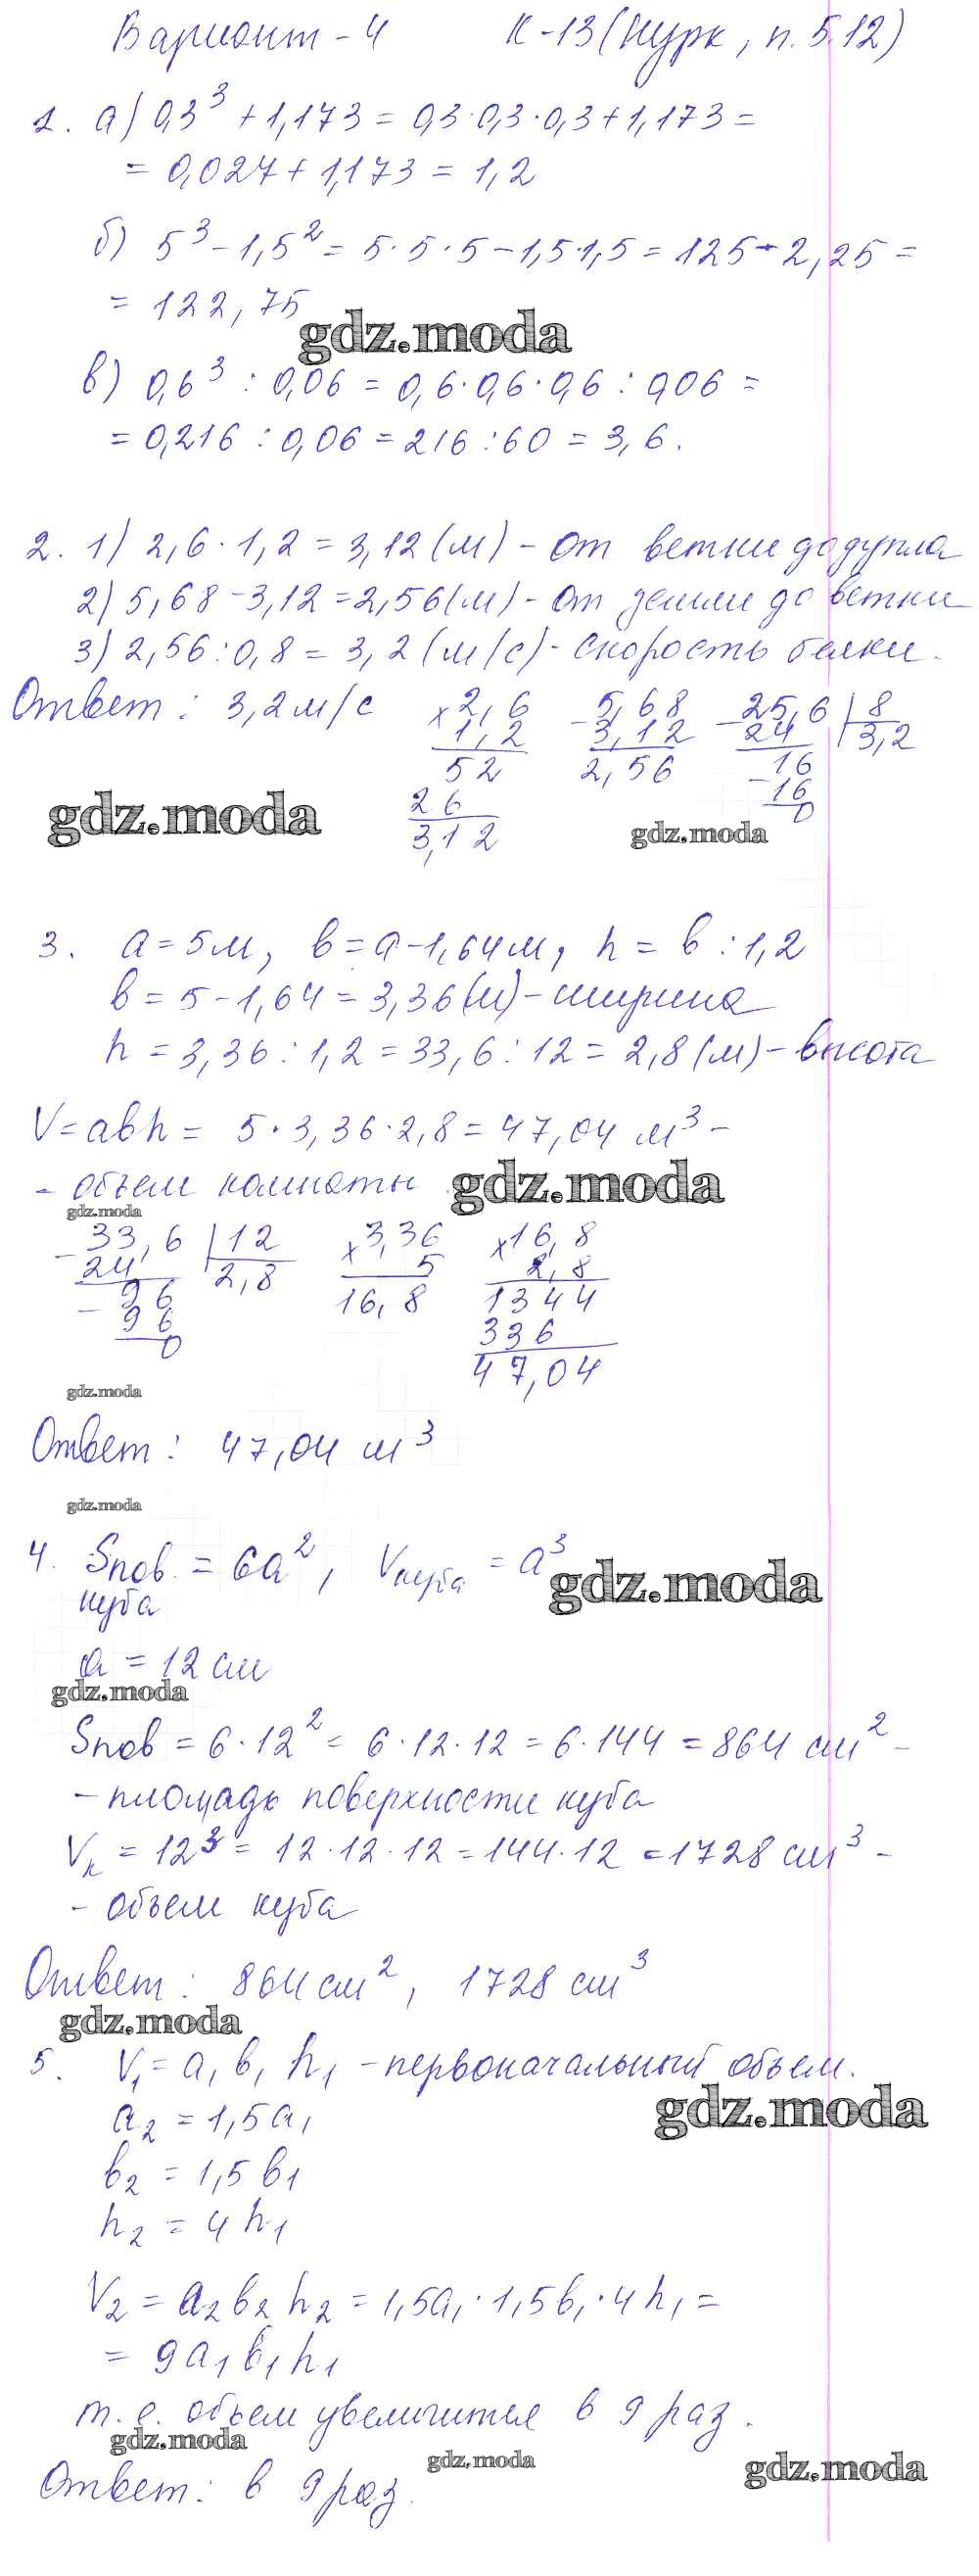 Вариант - 4 К-13 (Нурк, п. 5.12)
1. а) 0,3³ + 1,173 = 0,3·0,3·0,3 + 1,173 =
= 0,027 + 1,173 = 1,2
б) 5³ - 1,5² = 5·5·5 - 1,5·1,5 = 125 - 2,25 =
= 122,75
gdz.moda
в) 0,6³ : 0,06 = 0,6·0,6·0,6 : 0,06 =
= 0,216 : 0,06 = 216 : 60 = 3,6.
2. 1) 2,6 · 1,2 = 3,12 (м) - от ветки до дупла
2) 5,68 - 3,12 = 2,56 (м) - от земли до ветки
3) 2,56 : 0,8 = 3,2 (м/с) - скорость белки.
Ответ: 3,2 м/с
× 2,6
1,2
52
26
3,12
- 5,68
3,12
2,56
- 25,6 | 8
24 3,2
16
- 16
0
gdz.moda
gdz.moda
3. a = 5 м, в = a - 1,64 м, h = в : 1,2
в = 5 - 1,64 = 3,36 (м) - ширина
h = 3,36 : 1,2 = 33,6 : 12 = 2,8 (м) - высота
V = aвh = 5 · 3,36 · 2,8 = 47,04 м³ -
- объем комнаты
gdz.moda
gdz.moda
- 33,6 | 12
24 2,8
96
- 96
0
× 3,36
5
16,8
× 16,8
2,8
1344
336
47,04
gdz.moda
Ответ: 47,04 м³
gdz.moda
4. Sпов. = 6a², Vкуба = a³
куба
gdz.moda
a = 12 см
gdz.moda
Sпов = 6 · 12² = 6 · 12 · 12 = 6 · 144 = 864 см² -
- площадь поверхности куба
Vк = 12³ = 12 · 12 · 12 = 144 · 12 = 1728 см³ -
- объем куба
Ответ: 864 см², 1728 см³
gdz.moda
5. V₁ = a₁ в₁ h₁ - первоначальный объем.
gdz.moda
a₂ = 1,5a₁
в₂ = 1,5 в₁
h₂ = 4 h₁
V₂ = a₂ в₂ h₂ = 1,5a₁ · 1,5в₁ · 4 h₁ =
= 9 a₁ в₁ h₁
т.е. объем увеличится в 9 раз.
gdz.moda
gdz.moda
gdz.moda
Ответ: в 9 раз.